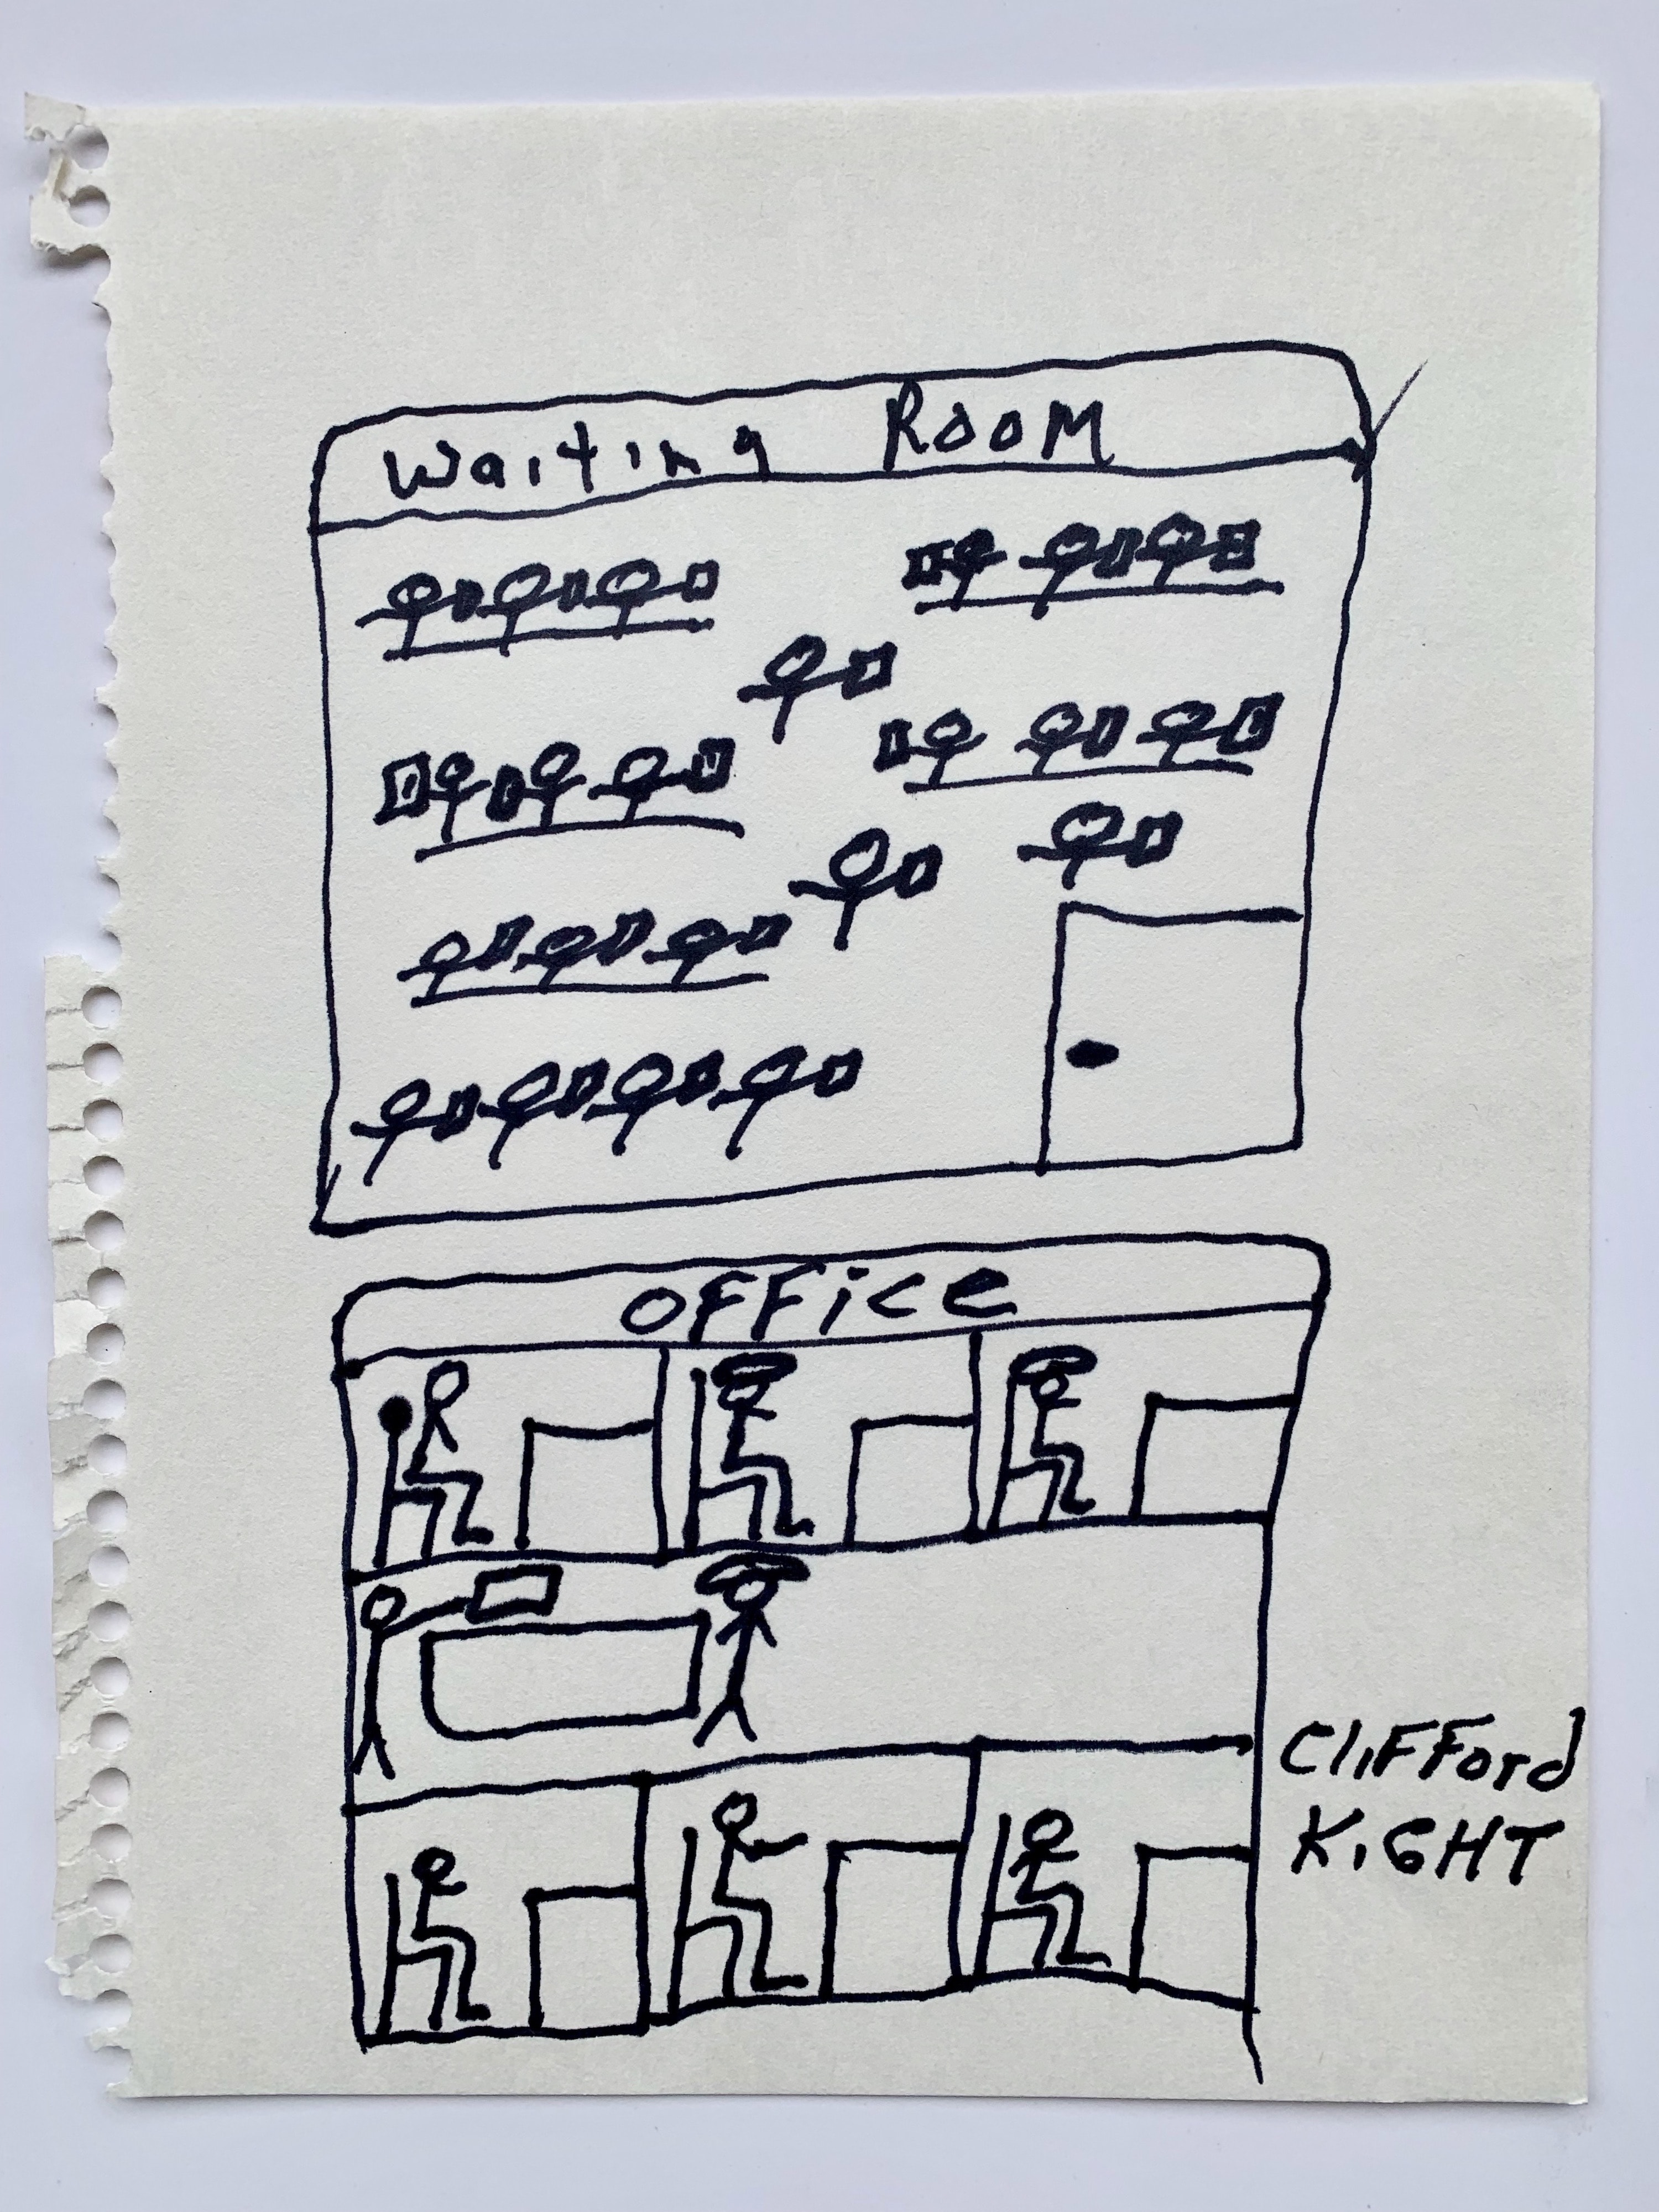 Waiting ROOM
OFFice
CliFFord
KiGHT